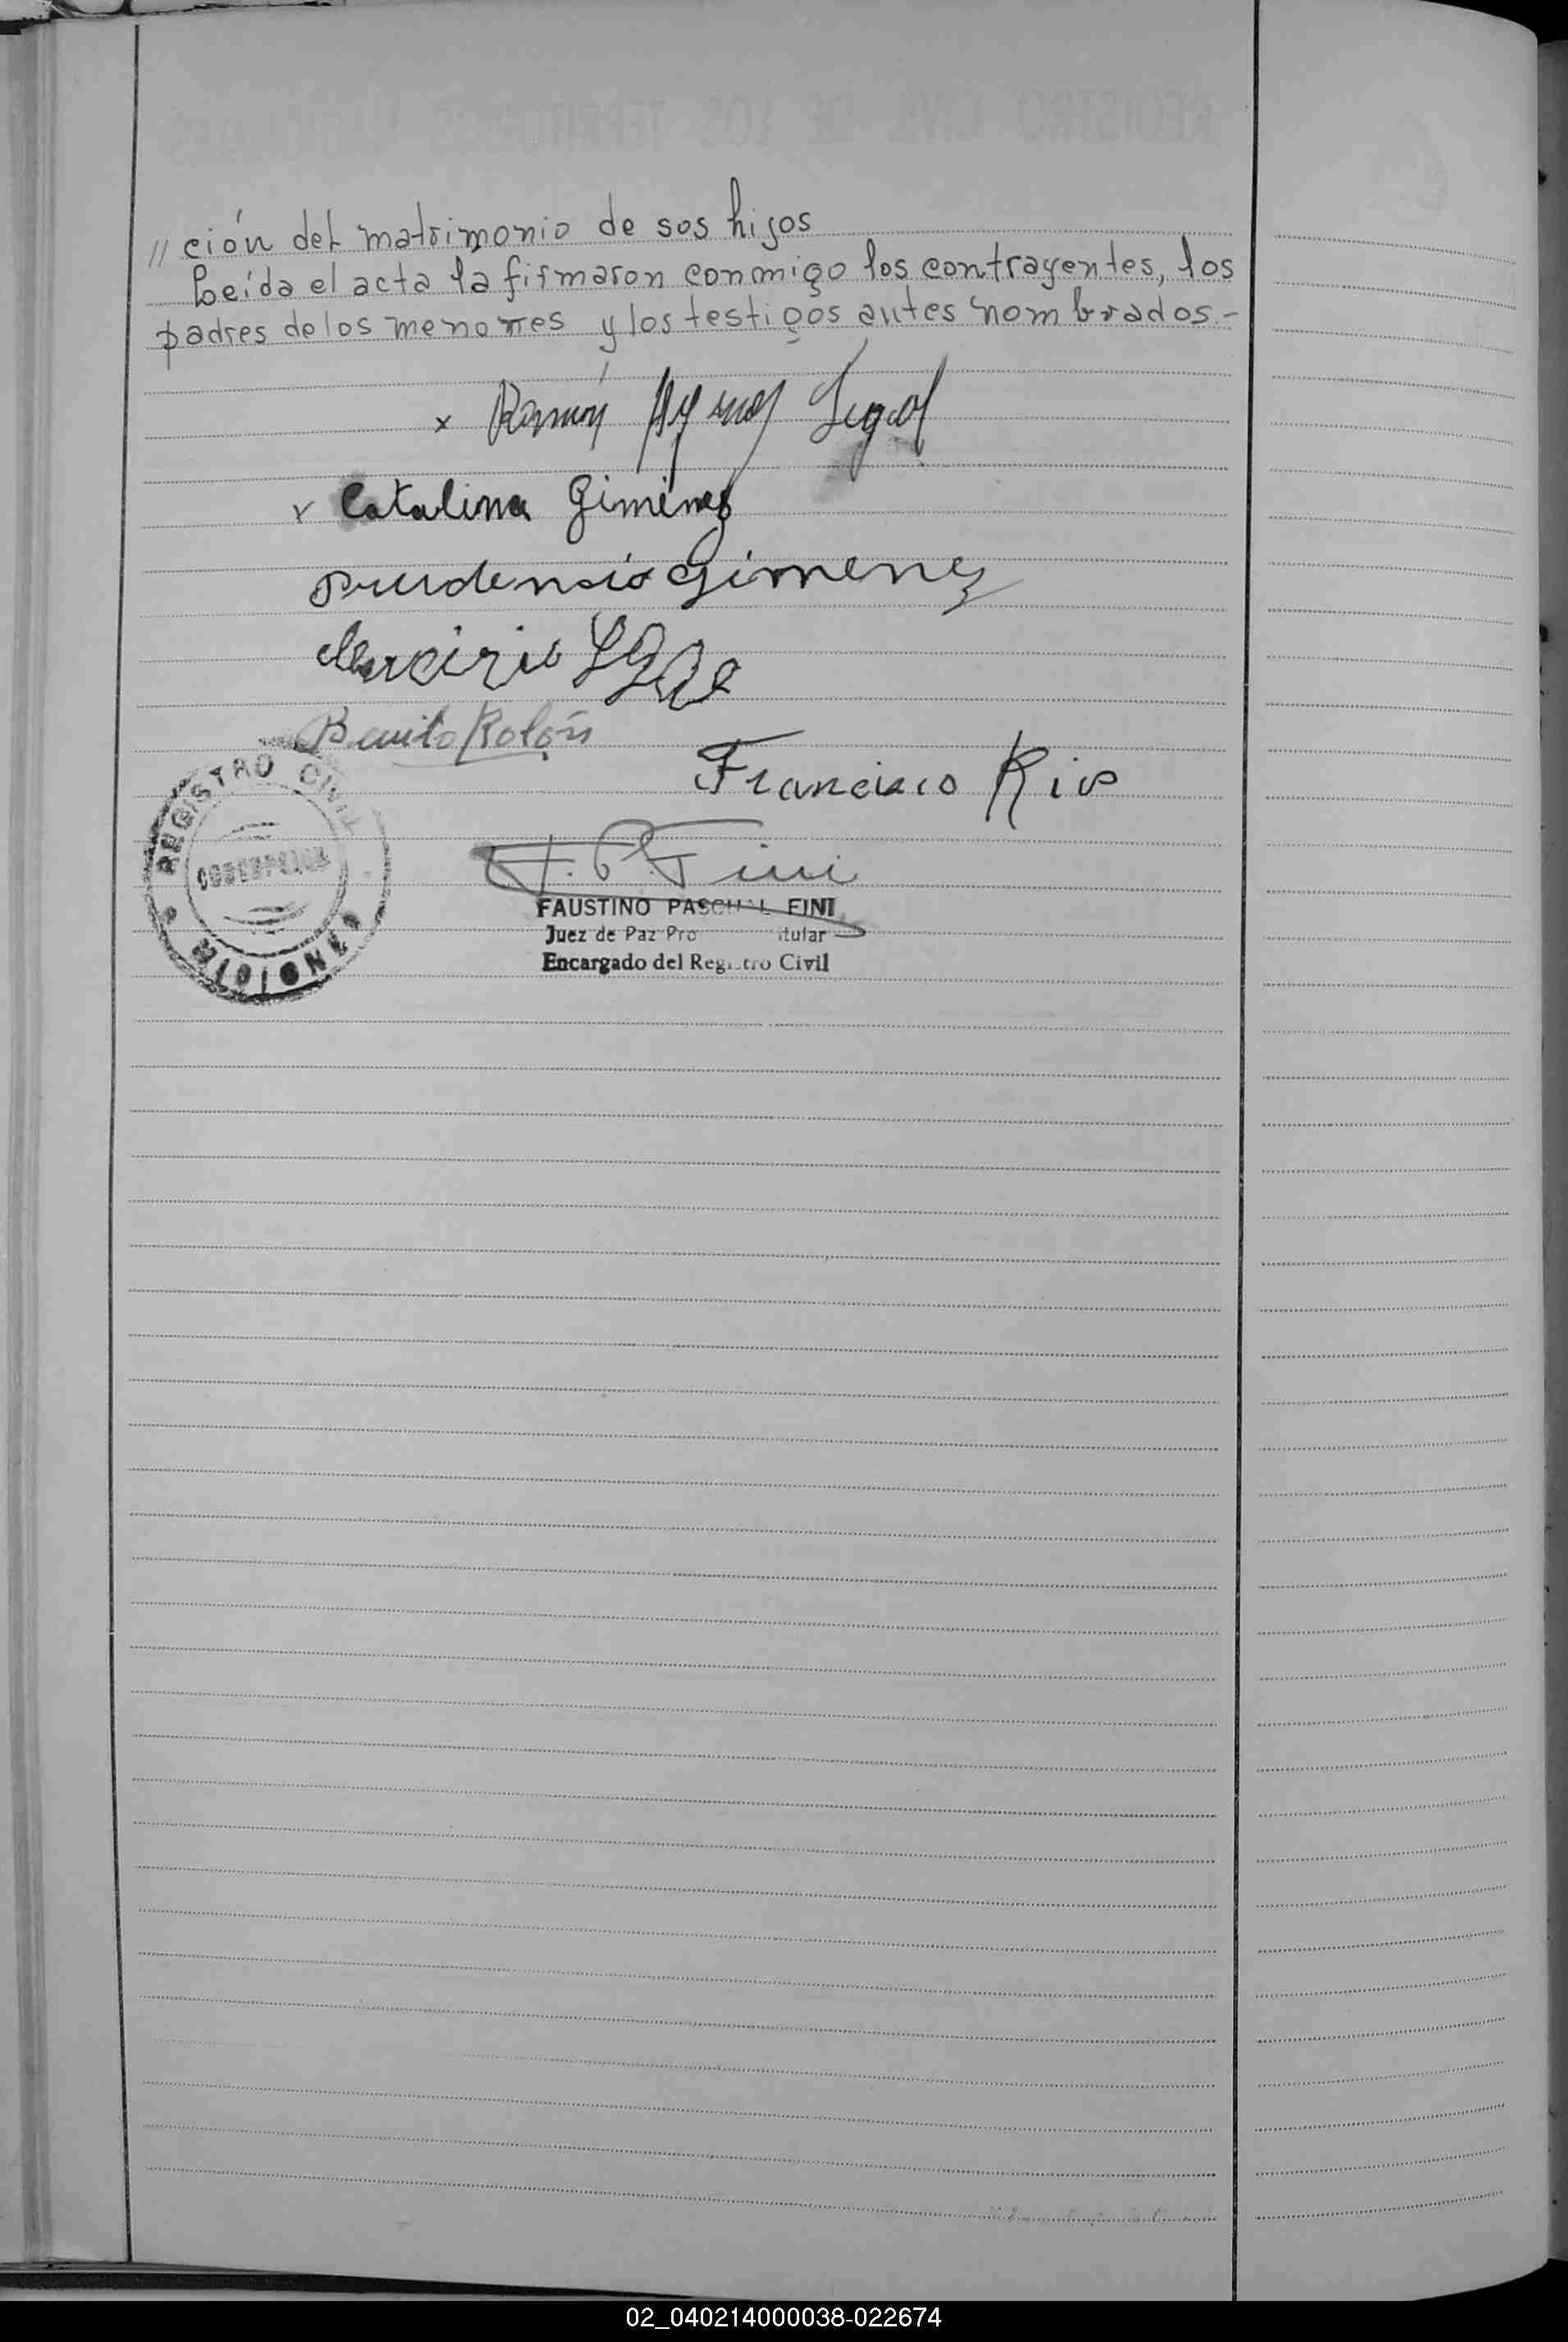 // ción del matrimonio de sus hijos
Leída el acta la firmaron conmigo los contrayentes, los
padres de los menores y los testigos antes nombrados.-
x Ramón
x Catalina Gimenez
Prudensio Gimenez
Benito Rolón
Francisco Rios
F. P. Fini
REGISTRO CIVIL
CONCEPCION
MISIONES
FAUSTINO PASCUAL FINI
Juez de Paz Pro itular
Encargado del Registro Civil
02_040214000038-022674